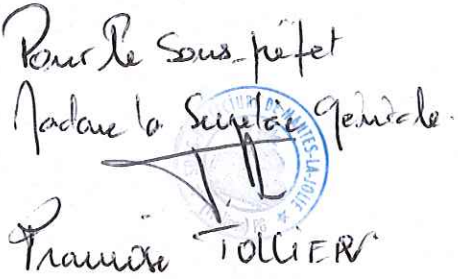 Pour le Sous-préfet
Madame la Secrétaire Générale.
MANTES-LA-JOLIE
Françoise TOLLIER